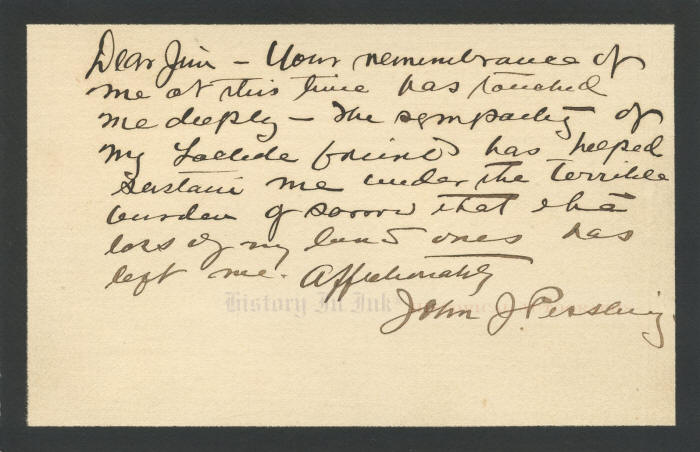 Dear Jim – Your remembrance of
me at this time has touched
me deeply – The sympathy of
my Laclede friends has helped
sustain me under the terrible
burden of sorrow that the
loss of my loved ones has
left me. Affectionately
History In Ink
John J. Pershing